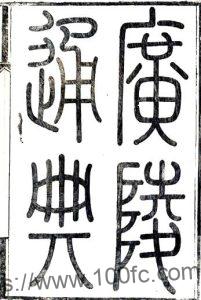 廣陵
通典
www.100fc.com